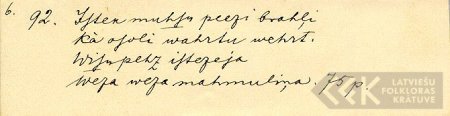 6.
92. Isten muhsu peezi brahļi
Kà osoli wahrtu wehrt.
Wisu pehz istezeja
Weza weza mahmuliņa. 75 p.
LATVIEŠU
FOLKLORAS
KRĀTUVE